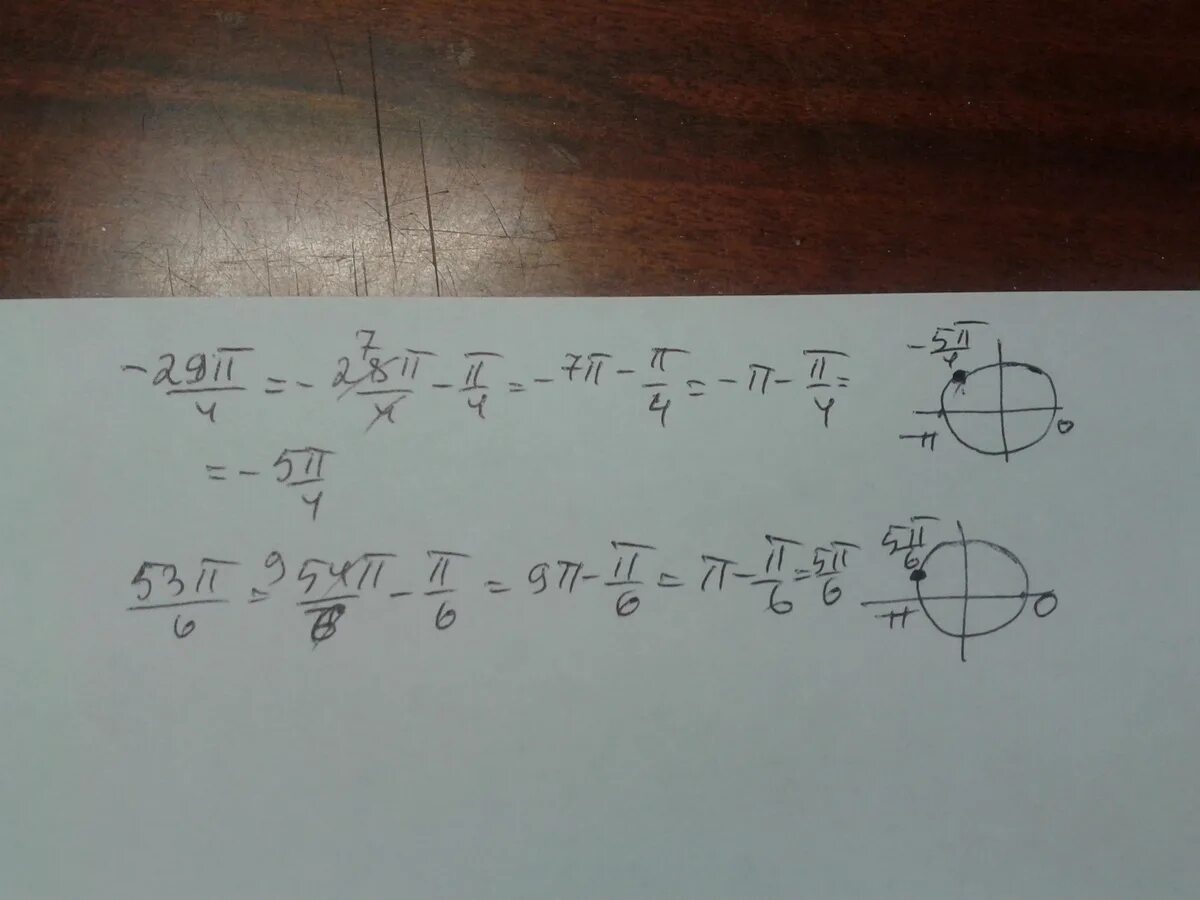 -29π/4 = -28π/4 7 - π/4 = -7π - π/4 = -π - π/4 =
= -5π/4
-5π/4
-π 0
53π/6 = 9 54π/6 - π/6 = 9π - π/6 = π - π/6 = 5π/6
5π/6
π 0